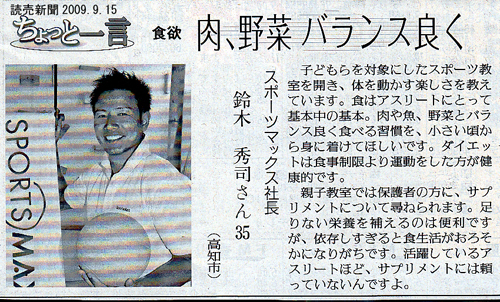 読売新聞 2009.9.15
ちょっと一言
食欲
肉、野菜 バランス良く
スポーツマックス社長
鈴木 秀司さん 35
(高知市)
SPORTS MAX
子どもらを対象にしたスポーツ教
室を開き、体を動かす楽しさを教え
ています。食はアスリートにとって
基本中の基本。肉や魚、野菜とバラ
ンス良く食べる習慣を、小さい頃か
ら身に着けてほしいです。ダイエッ
トは食事制限より運動をした方が健
康的です。
親子教室では保護者の方に、サプ
リメントについて尋ねられます。足
りない栄養を補えるのは便利です
が、依存しすぎると食生活がおろそ
かになりがちです。活躍しているア
スリートほど、サプリメントには頼
っていないんですよ。